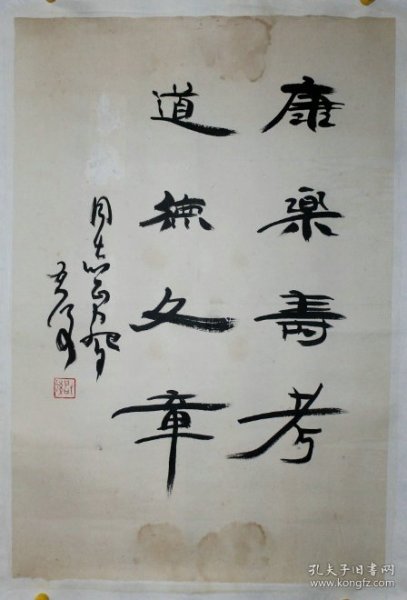 康樂壽考
道德文章
同志正之
孔夫子旧书网
www.kongfz.com